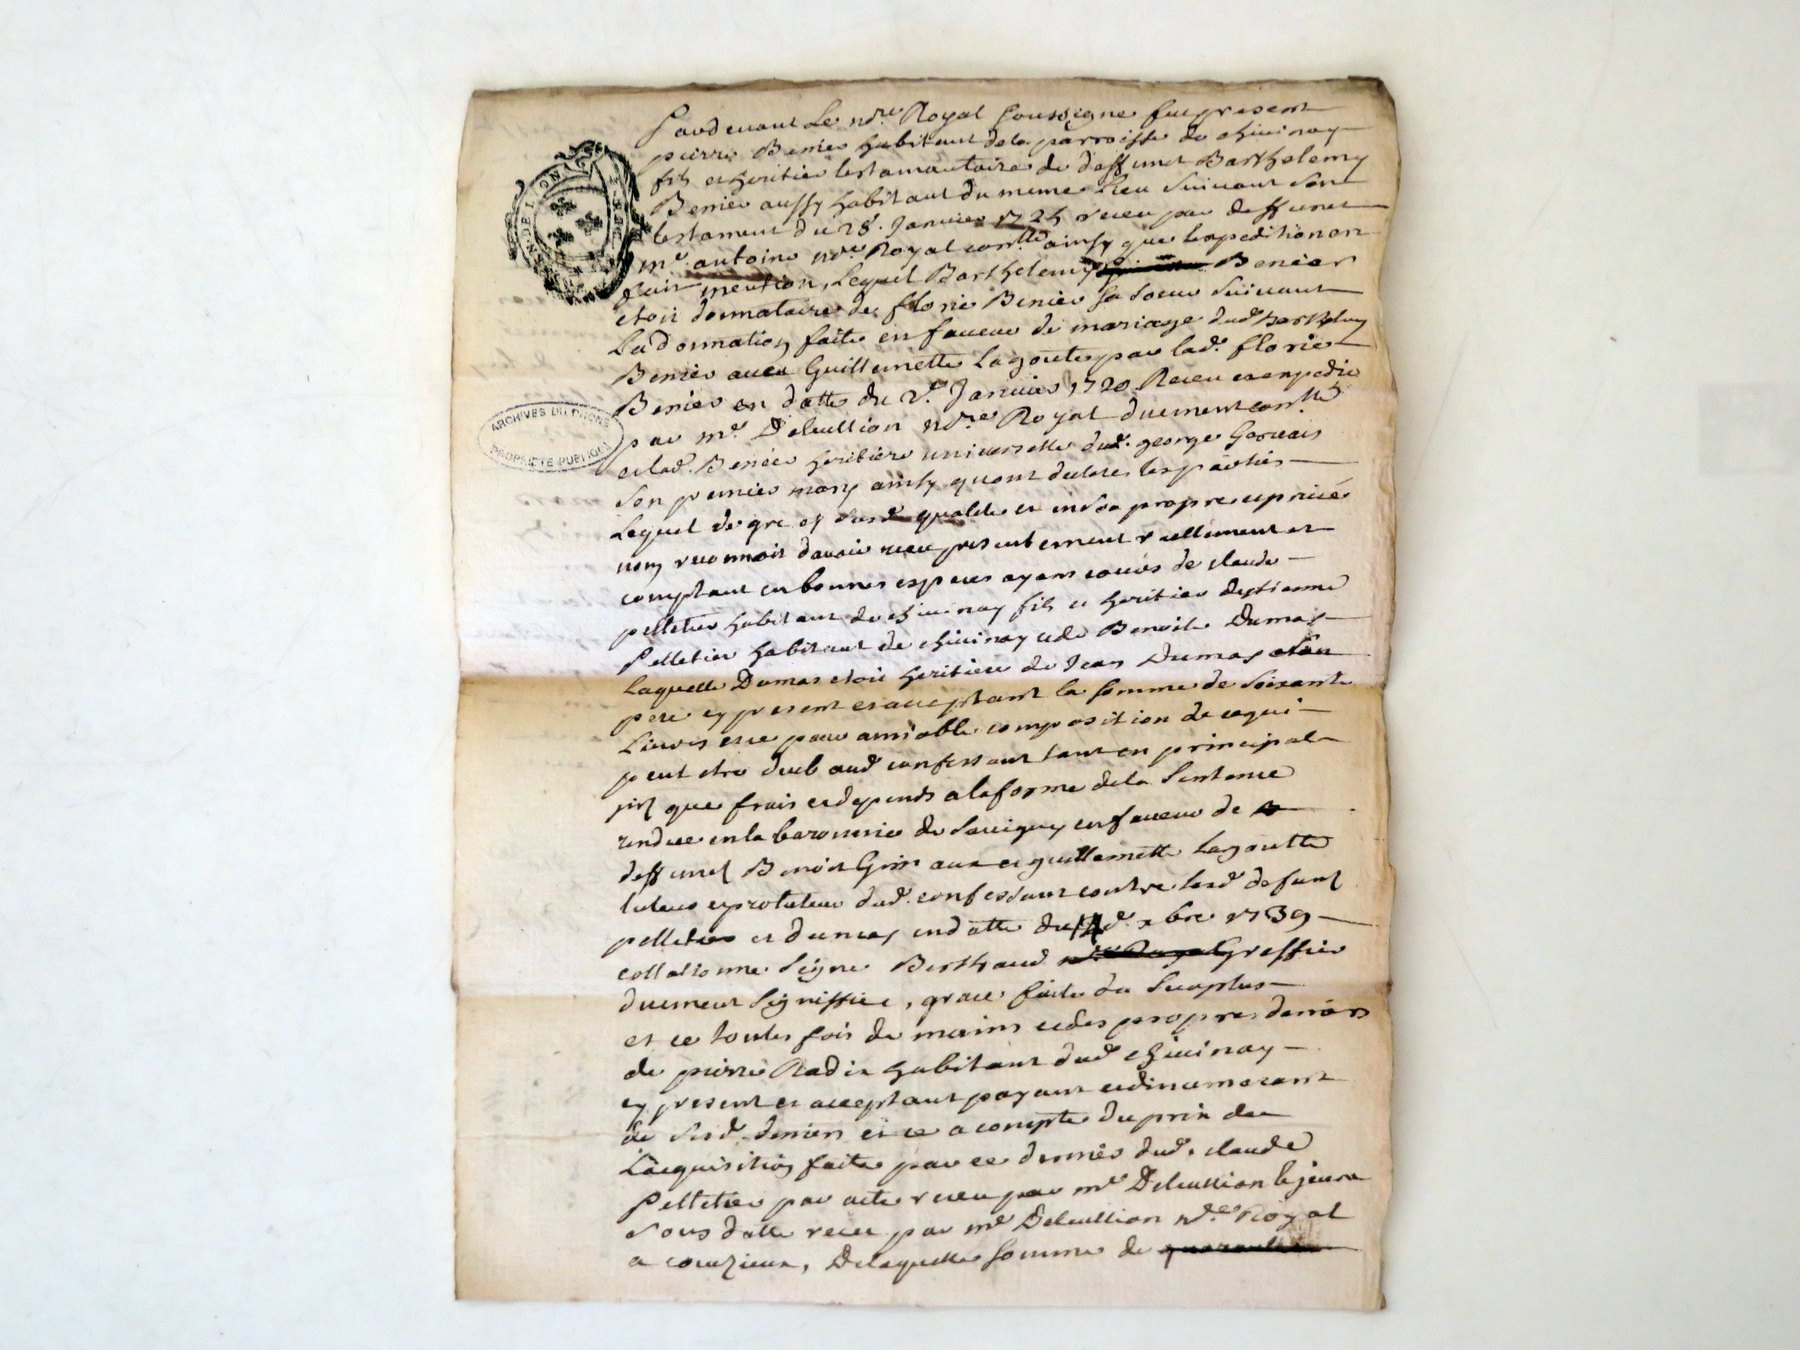 Pardevant Le nre Royal soussigne fut present
pierre Benier habitant dela parroisse de chivinay
fils et heritier testamantaire de deffunct Barthelemy
Benier aussy habitant du meme Lieu suivant son
testament du 28e. Janvier 1725 receu par deffunct
me. antoine nre Royal conlle ainsy que lexpedition en
fait mention, Lequel Barthelemy Benier
etoit donnataire de florie Benier sa soeur suivant
La donnation faite en faveur de mariage dud Barthelemy
Benier avec Guillemette Lagoutte par lad. florie
Benier en datte du 2e. Janvier 1720 Receu et expedie
par me. Delullion nre Royal duement conlle
et lad. Benier heritiere universelle dud. george Gervais
son premier mary ainsy quont declare les parties
Lequel de gre et susd qualite et en son propre et privé
nom reconnoit davoir receu presentement reellement et
comptant en bonnes especes ayant cours de claude
pelletier habitant de chivinay fils et heritier destienne
Pelletier habitant de chivinay et de Benoiste Dumas
Laquelle Dumas etoit heritiere de Jean Dumas son
pere cy present et acceptant la somme de soixante
Livres et ce pour amiable composition de ce qui
peut etre deub aud confessant tant en principal
que frais et depends a la forme de la sentence
rendue en la baronnie de Savigny en faveur de
deffunct Benoit Grin et guillemette Lagoutte
tuteur et protuteur dud. confessant contre lesd defunt
pelletier et dumas en datte du 14e. xbre 1739
collationne signe Berthaud Greffier
duement signiffiée, grace faite du surplus
et ce toutes fois de mains et des propres deniers
de pierre Radix habitant dud chivinay
cy present et acceptant payant et dinumerant
de sesd. deniers et ce a compte du prix de
Lacquisition faite par ce dernier dud. claude
Pelletier par acte receu par me Delullion le jeune
sous datte receu par me Delullion nre Royal
a courzieux, De laquelle somme de
ARCHIVES DU RHÔNE
PROPRIÉTÉ PUBLIQUE